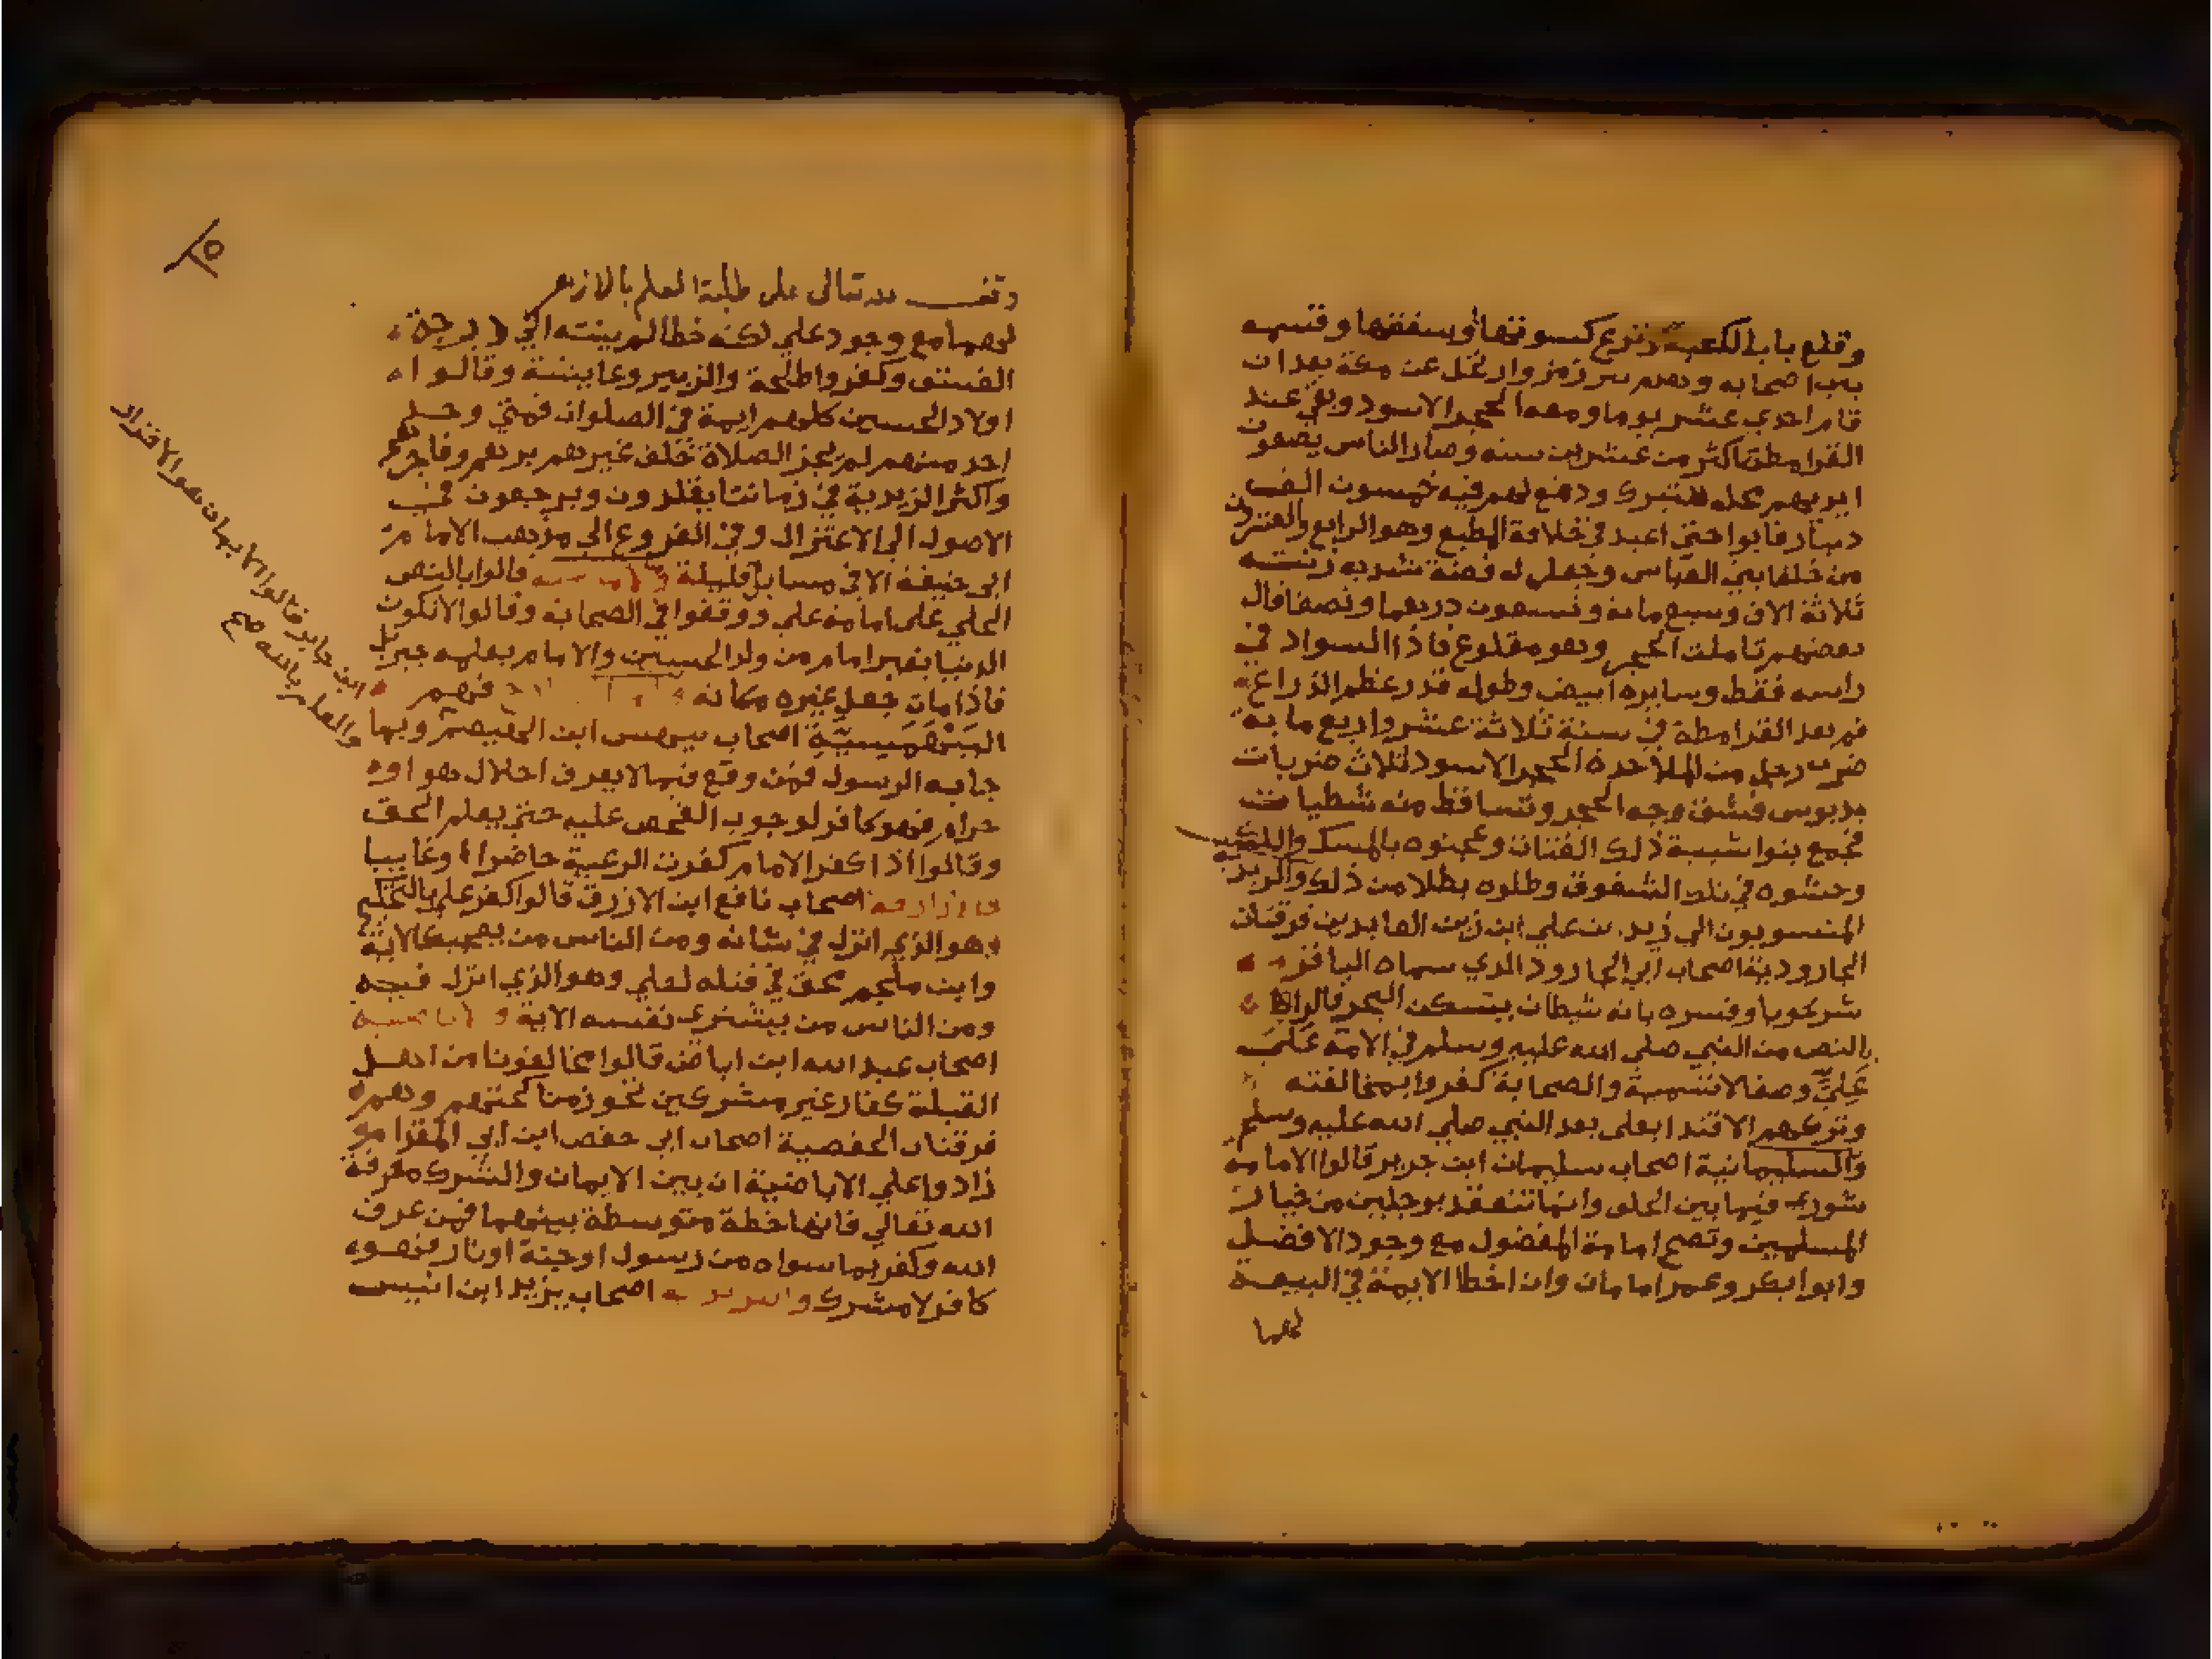 وقلع باب الكعبة ونزع كسوتها وسقفها وقسمه
بين اصحابه وهدم بير زمزم وارتحل عن مكة بعد ان
قام احدي عشر يوما ومعه الحجر الاسود وبقي عند
القرامطة اكثر من عشرين سنه وصار الناس يضعون
ايديهم محله للتبرك ودفع لهم فيه خمسون الف
دينار فابوا حتي اعيد في خلافة المطيع وهو الرابع والعشرون
من خلفا بني العباس وجعل له فضة شد به زنته
ثلاثة الاف وسبع مائة وتسعون درهما ونصفا قال
بعضهم تاملت الحجر وهو مقلوع فاذا السواد في
راسه فقط وسايره ابيض وطوله قدر عظم الذراع
ثم بعد القرامطة في سنة ثلاثة عشر واربع مايه
ضرب رجل من الملاحدة الحجر الاسود ثلاث ضربات
بدبوس فشق وجه الحجر وتساقط منه شظيات
فجمع بنوا شيبة ذلك الفتات وعجنوه بالمسك واللك
وحشوه في تلك الشقوق وطلوه بطلا من ذلك والزيدية
المنسوبون الي زيد بن علي ابن زين العابدين فرقتان
الجارودية اصحاب ابي الجارود الذي سماه الباقر
سرحوبا وفسره بانه شيطان يسكن البحر قالوا
بالنص من النبي صلي الله عليه وسلم في الامة علي
علي وصفا لا تسمية والصحابة كفروا بمخالفته
وتركهم الاقتدا بعلي بعد النبي صلي الله عليه وسلم
والسليمانية اصحاب سليمان ابن جرير قالوا الامامه
شوري فيما بين الخلق وانما تنعقد برجلين من خيار
المسلمين وتصح امامة المفضول مع وجود الافضل
وابوا بكر وعمر امامان وان اخطا الايمة في البيعة
لهما
وقف لله تعالى على طلبة العلم بالازهر
لهما مع وجود علي لكنه خطا لم ينته الي درجة
الفسق وكفروا طلحة والزبير وعايشة وقالوا
اولاد الحسين كلهم ايمة في الصلوات فمتي وجد
احد منهم لم تجز الصلاة خلف غيرهم برهم وفاجرهم
واكثر الزيدية في زماننا يقلدون ويرجعون في
الاصول الي الاعتزال وفي الفروع الي مذهب الامام
ابي حنيفة الا في مسايل قليلة قالوا بالنص
الجلي علي امامة علي ووقفوا في الصحابة وقالوا لا تكون
الدنيا بغير امام من ولد الحسين والامام يعلمه جبريل
فاذا مات جعل غيره مكانه فمنهم
البيهسية اصحاب بيهس ابن الهيصم وبما
جا به الرسول فمن وقع فيما لا يعرف احلال هو او
حرام فهو كافر لوجوب الفحص عليه حتي يعلم الحق
وقالوا اذا كفر الامام كفرت الرعية حاضرا او غايبا
والازارقة اصحاب نافع ابن الازرق قالوا كفر علي بالتحكيم
وهو الذي انزل في شانه ومن الناس من يعجبك الاية
وابن ملجم محق في قتله لعلي وهو الذي انزل فيه
ومن الناس من يشتري نفسه الاية والاباضية
اصحاب عبد الله ابن اباض قالوا مخالفونا من اهل
القبلة كفار غير مشركين تجوز مناكحتهم وهم
فرقتان الحفصية اصحاب ابي حفص ابن ابي المقدام
زادوا علي الاباضية ان بين الايمان والشرك معرفة
الله تعالي فانها خطة متوسطة بينهما فمن عرف
الله وكفر بما سواه من رسول او جنة او نار فهو
كافر لا مشرك واليزيدية اصحاب يزيد ابن انيس
ابن جابر قالوا الايمان هو الاقرار
والعلم بالله صح